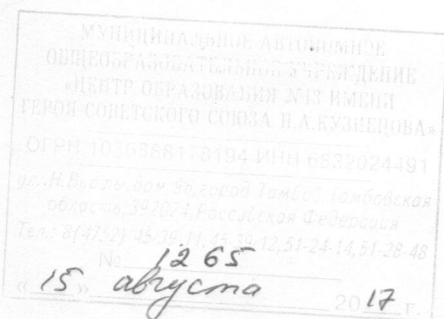 МУНИЦИПАЛЬНОЕ АВТОНОМНОЕ
ОБЩЕОБРАЗОВАТЕЛЬНОЕ УЧРЕЖДЕНИЕ
«ЦЕНТР ОБРАЗОВАНИЯ №13 ИМЕНИ
ГЕРОЯ СОВЕТСКОГО СОЮЗА Н.А.КУЗНЕЦОВА»
ОГРН ИНН 6832024491
ул.Н.Вирты,дом город Тамбов,Тамбовская
область,392024,Российская Федерация
Тел.: 8(4752) 45-39-11,45-39-12,51-24-14,51-28-48
№ 1265
«15» августа 2017 г.